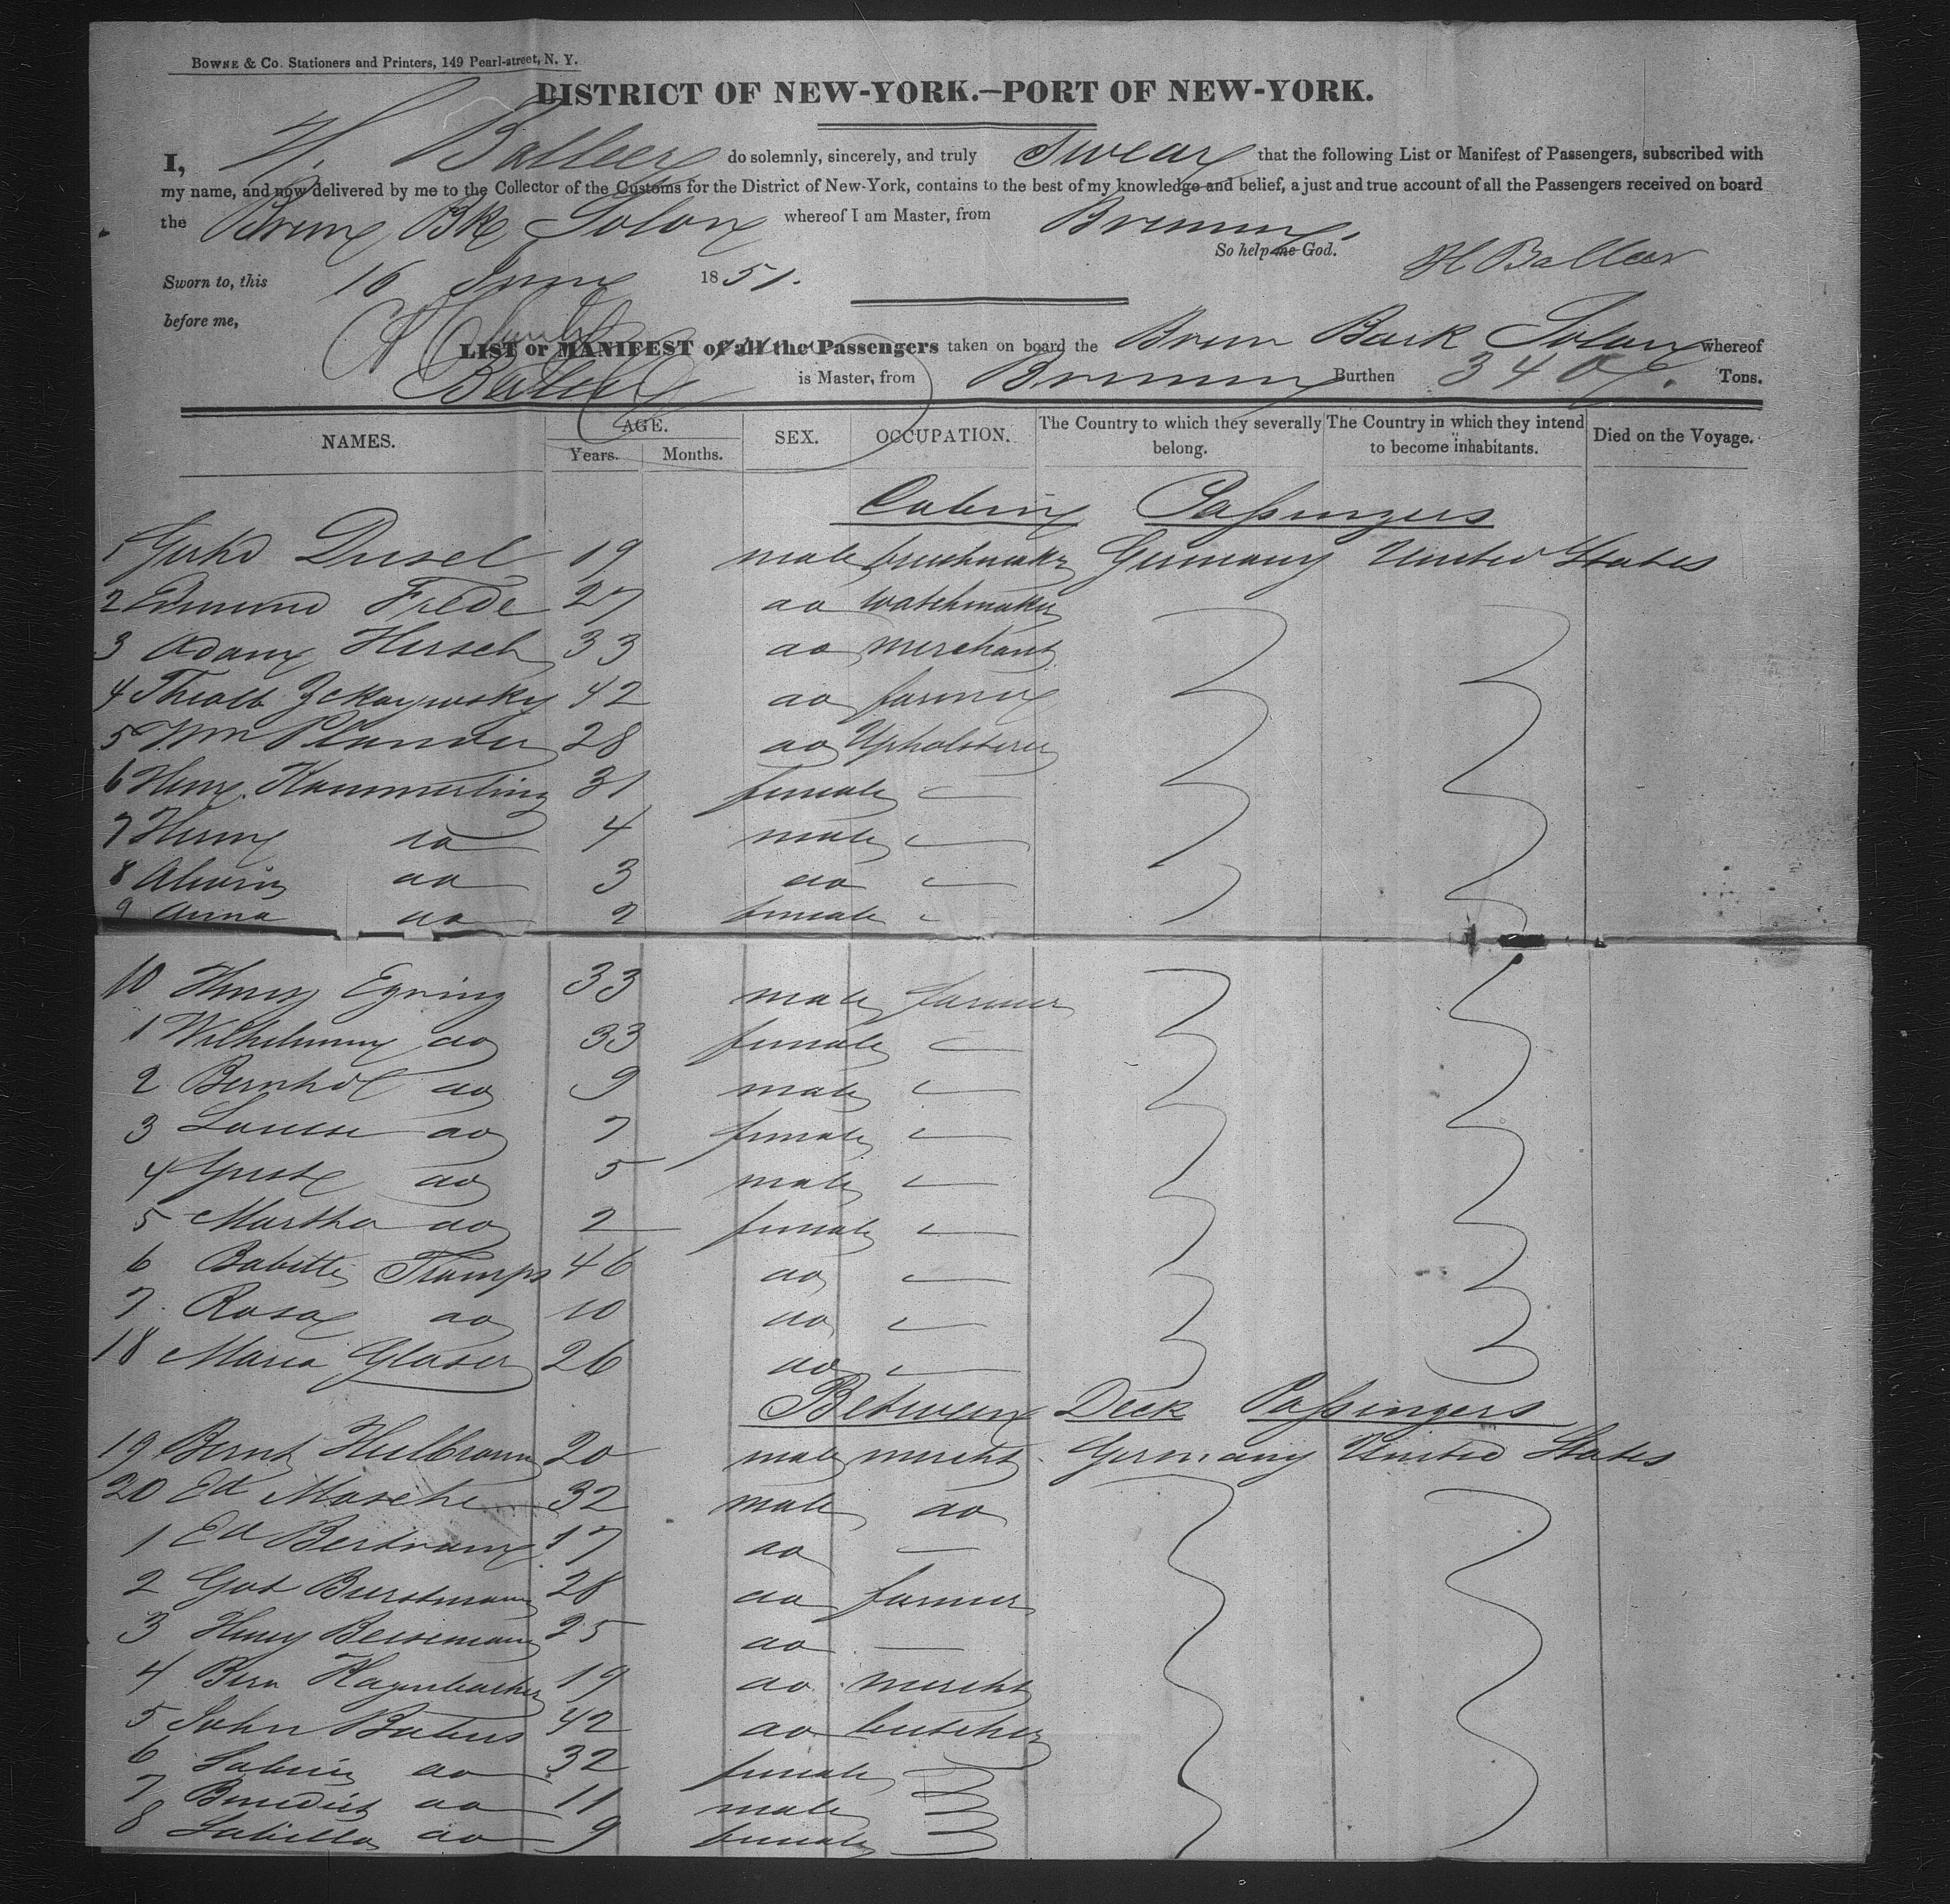 BOWNE & Co. Stationers and Printers, 149 Pearl-street, N. Y.
DISTRICT OF NEW-YORK.—PORT OF NEW-YORK.
I, H. Balleer do solemnly, sincerely, and truly Swear that the following List or Manifest of Passengers, subscribed with
my name, and now delivered by me to the Collector of the Customs for the District of New-York, contains to the best of my knowledge and belief, a just and true account of all the Passengers received on board
the Brem Bk Solon whereof I am Master, from Bremen.
So help me God. H Balleer
Sworn to, this 16 June 1851.
before me,
LIST or MANIFEST of all the Passengers taken on board the Brem Bark Solon whereof
Balleer is Master, from Bremen Burthen 340 Tons.
NAMES. AGE. Years. Months. SEX. OCCUPATION. The Country to which they severally belong. The Country in which they intend to become inhabitants. Died on the Voyage.
Cabin Passengers
1 Dusel 19 male Germany United States
2 Edmund Frede 27 do watchmaker
3 Adam Hirsch 33 do merchant
4 42 do farmer
5 Wm 28 do Upholsterer
6 Kammerling 31 female —
7 Henry do 4 male —
8 Alwin do 3 do —
9 Anna do 2 female -
10 Henry Eyring 33 male farmer
1 Wilhelmine do 33 female —
2 Bernhd do 9 male —
3 Louise do 7 female —
4 do 5 male —
5 Martha do 2 female —
6 Babette Tramps 46 do —
7 Rosa do 10 do —
18 Maria Glaser 26 do —
Between Deck Passengers
19 Bernh Heilbronn 20 male mercht Germany United States
20 Ed Masche 32 male do
1 Ed Bertram 17 do —
2 Got 28 do farmer
3 Henry 25 do —
4 Bern Hagenbacher 19 do mercht
5 John Babus 42 do butcher
6 Sabin do 32 female
7 Benedict do 11 male
8 Sabilla do 9 female